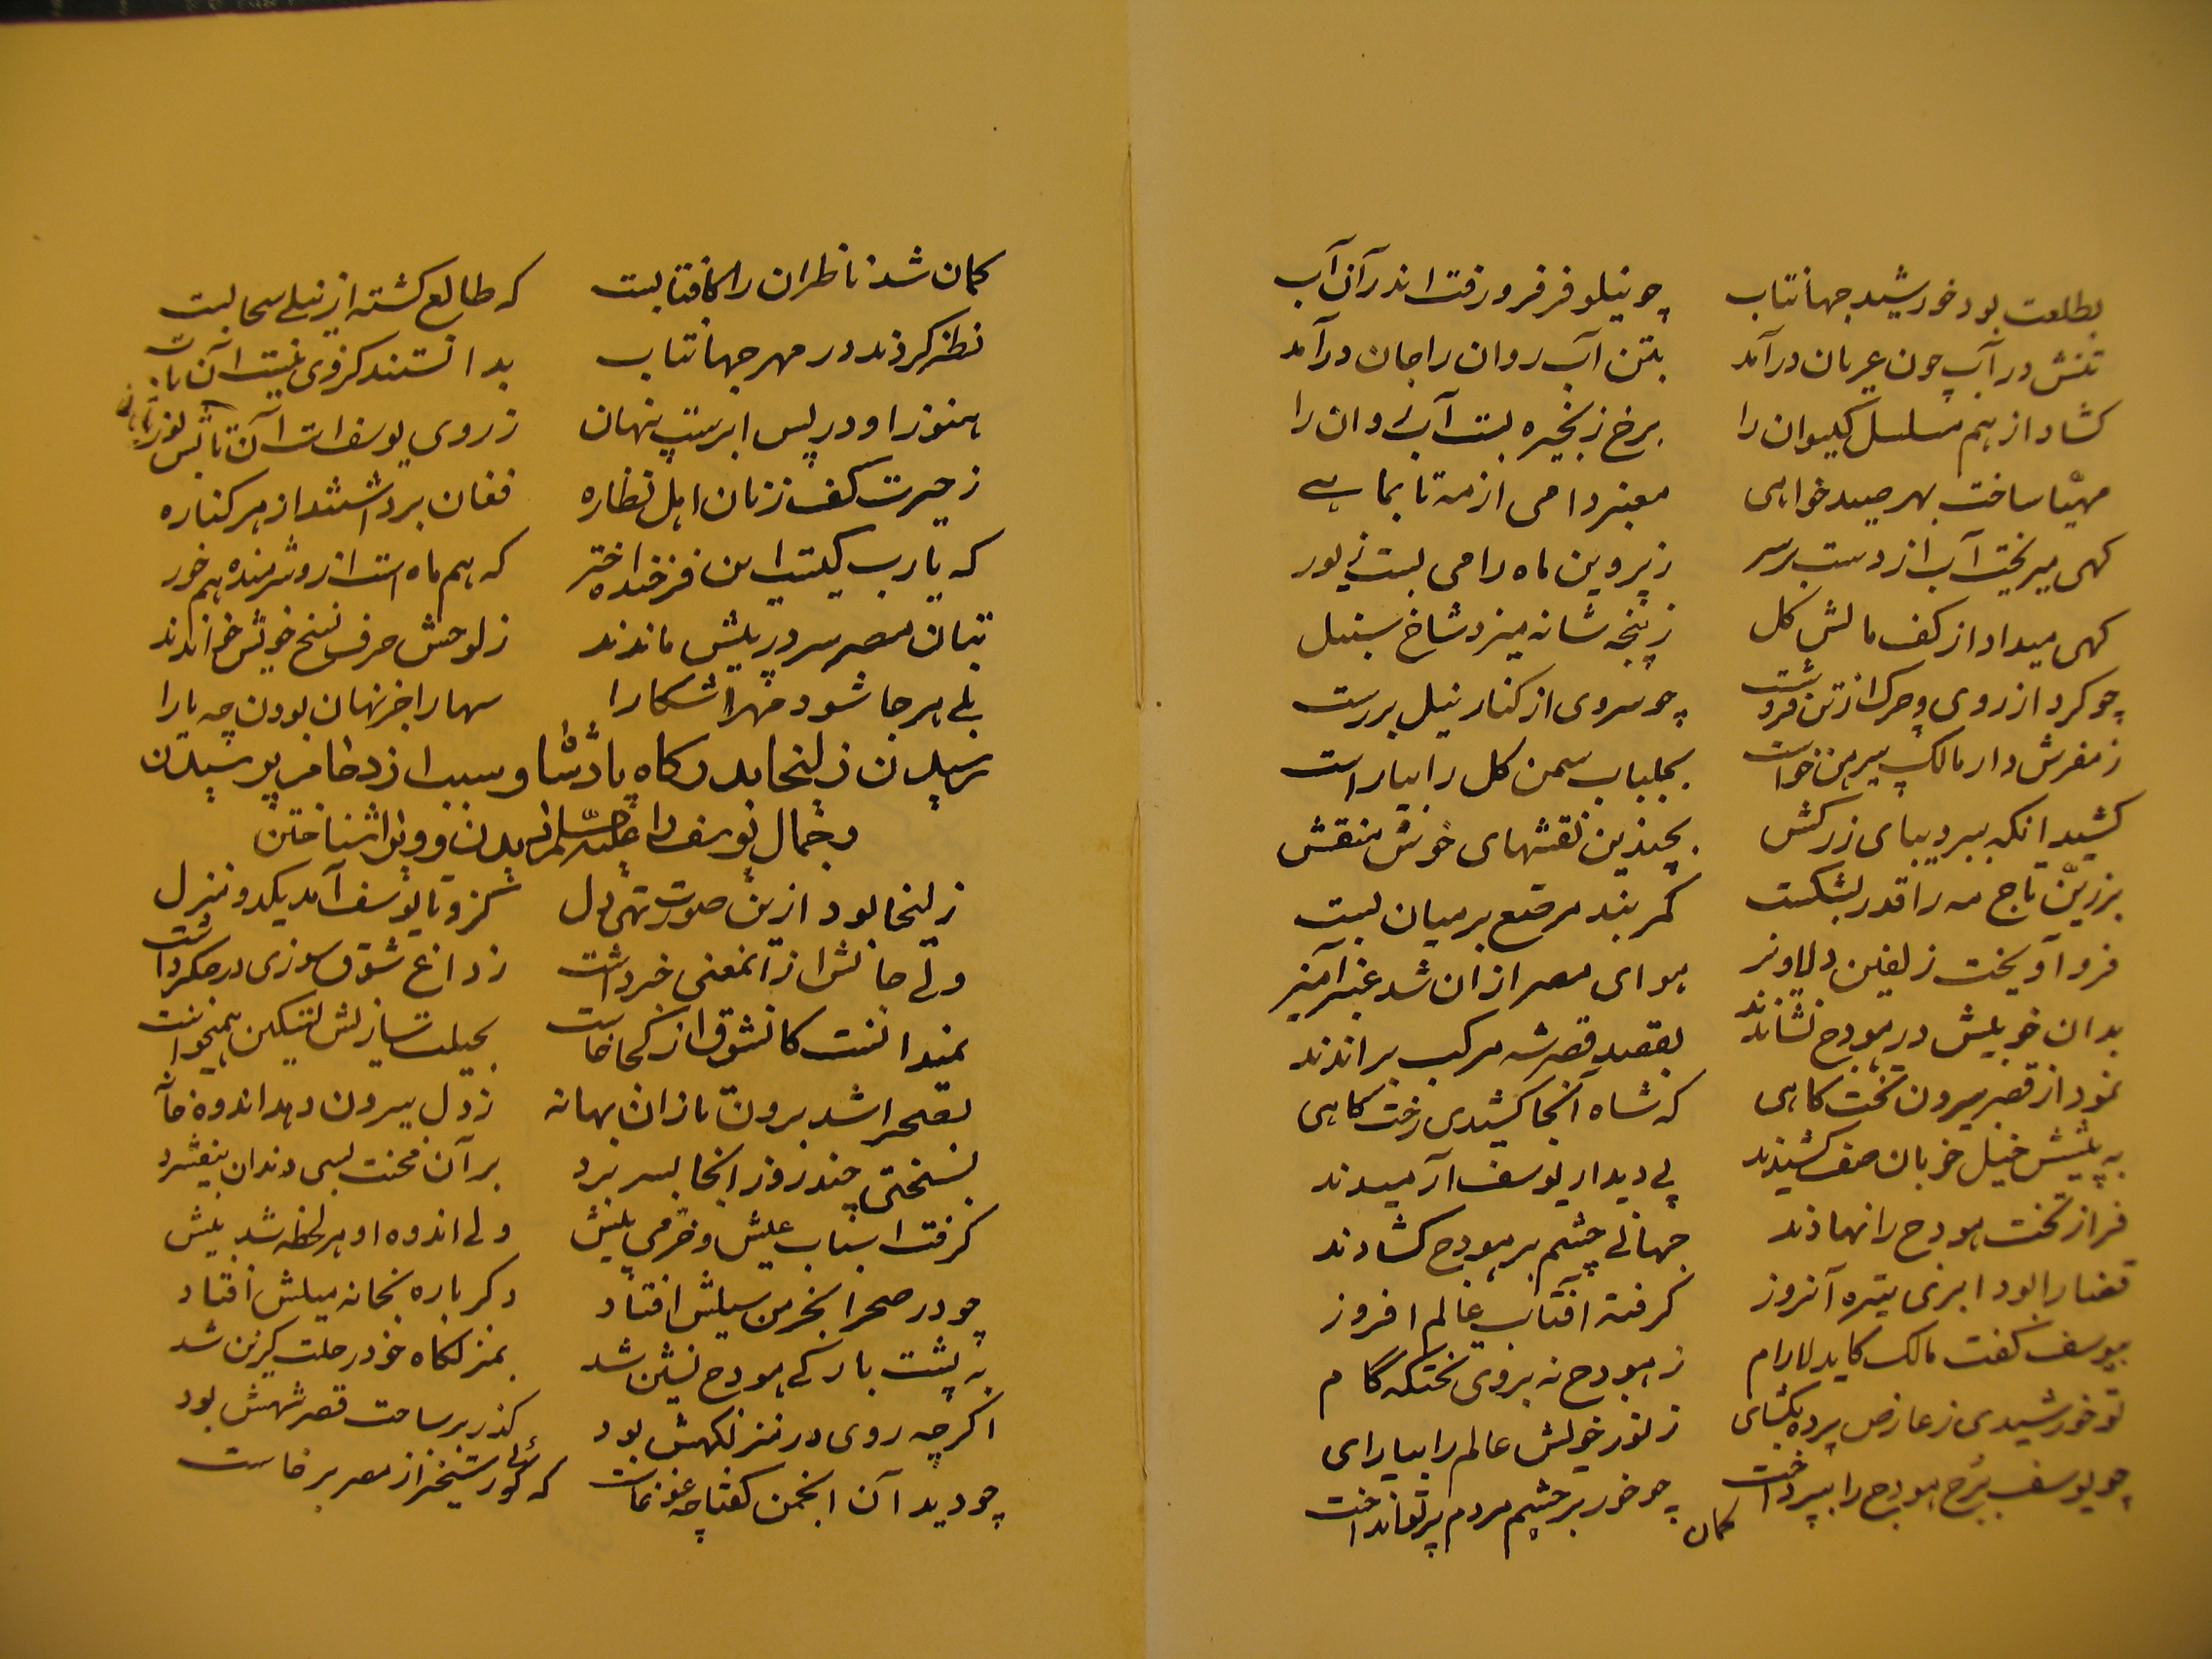 بطلعت بود خورشید جهانتاب چو نیلوفر فرو رفت اندر آن آب
تنش در آب چون عریان درآمد بتن آب روان را جان درآمد
کشاد از هم مسلسل کیسوان را برخ زنجیره بست آب روان را
مهیّا ساخت بهر صید خواهی معنبر دامی از مه تا بماهے
کهی میریخت آب از دست بر سر ز پروین ماه را می بست زیور
کهی میداد از کف مالش کل ز پنجه شانه میزد شاخ سنبل
چو کرد از روی و چرک از تن فروشت چو سروی از کنار نیل بررست
ز مفرش دار مالک پیرهن خواست بجلباب سمن کل را بیاراست
کشید انکه ببر دیبای زرکش بچندین نقشهای خوش منقش
بزرّین تاج مه را قدر بشکست کمربند مرصع بر میان بست
فرو آویخت زلفین دلاویز هوای مصر ازان شد عنبرآمیز
بدان خوبیش در هودج نشاندند بقصد قصر شه مرکب براندند
نمود از قصر بیرون تخت کاهی که شاه آنجا کشیدی رخت کاهی
به پیشش خیل خوبان صف کشیدند پی دیدار یوسف آرمیدند
فراز تخت هودج را نهادند جهانی چشم بر هودج کشادند
قضا را بود ابری تیره آنروز کرفته افتاب عالم افروز
بیوسف کفت مالک کای دلارام ز هودج نه بروی تختکه گام
تو خورشیدی ز عارض پرده بکشای ز نور خویش عالم را بیارای
چو یوسف برج هودج را بپرداخت چو خور بر چشم مردم پرتو انداخت
کمان
کمان شد ناظران را کافتابست که طالع کشته از نیلے سحابست
نظر کردند در مهر جهانتاب بدانستند کز وی نیست آن تاب
هنوز او در پس ابرست پنهان ز روی یوسف است آن تابش
ز حیرت کف زنان اهل نظاره فغان برداشتند از هر کناره
که یا رب کیست این فرخنده اختر که هم ماه است ازو شرمنده هم خور
بتان مصر سر در پیش ماندند ز لوحش حرف نسخ خویش خواندند
بلے هر جا شود مهر آشکارا سها را جز نهان بودن چه یارا
رسیدن زلیخا بدرکاه پادشاه و سبب ازدحام پرسیدن
و جمال یوسف را علیه السلام دیدن و ویرا شناختن
زلیخا بود ازین صورت تهی دل کزو تا یوسف آمد یکدو منزل
ولی جانش ازانمعنی خبر داشت ز داغ شوق سوزی در جکر داشت
نمیدانست کان شوق از کجا خاست بحیلت سازیش تسکین همیخواست
بصحرا شد برون تا زان بهانه ز دل بیرون دهد اندوه خانه
بسختی چند روز انجا بسر برد بر آن محنت بسی دندان بیفشرد
کرفت اسباب عیش و خرمی پیش ولی اندوه او هر لحظه شد بیش
چو در صحرا بخرمن سیلش افتاد دکر باره بخانه میلش افتاد
به پشت بارکی هودج نشین شد بمنزلکاه خود رحلت کزین شد
اکرچه روی در منزلکهش بود کذر بر ساحت قصر شهش بود
چو دید آن انجمن کفتا چه غوغاست که کوئی رستخیز از مصر برخاست